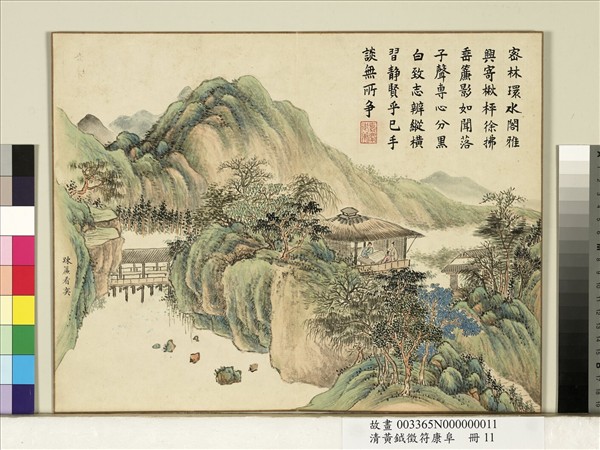 密林環水閣雅
興寄楸枰徐拂
垂簾影如聞落
子聲專心分黑
白致志辨縱橫
習靜賢乎已手
談無所爭
疎簾看奕
故畫 003365N000000011
清黃鉞徵符康阜 冊 11